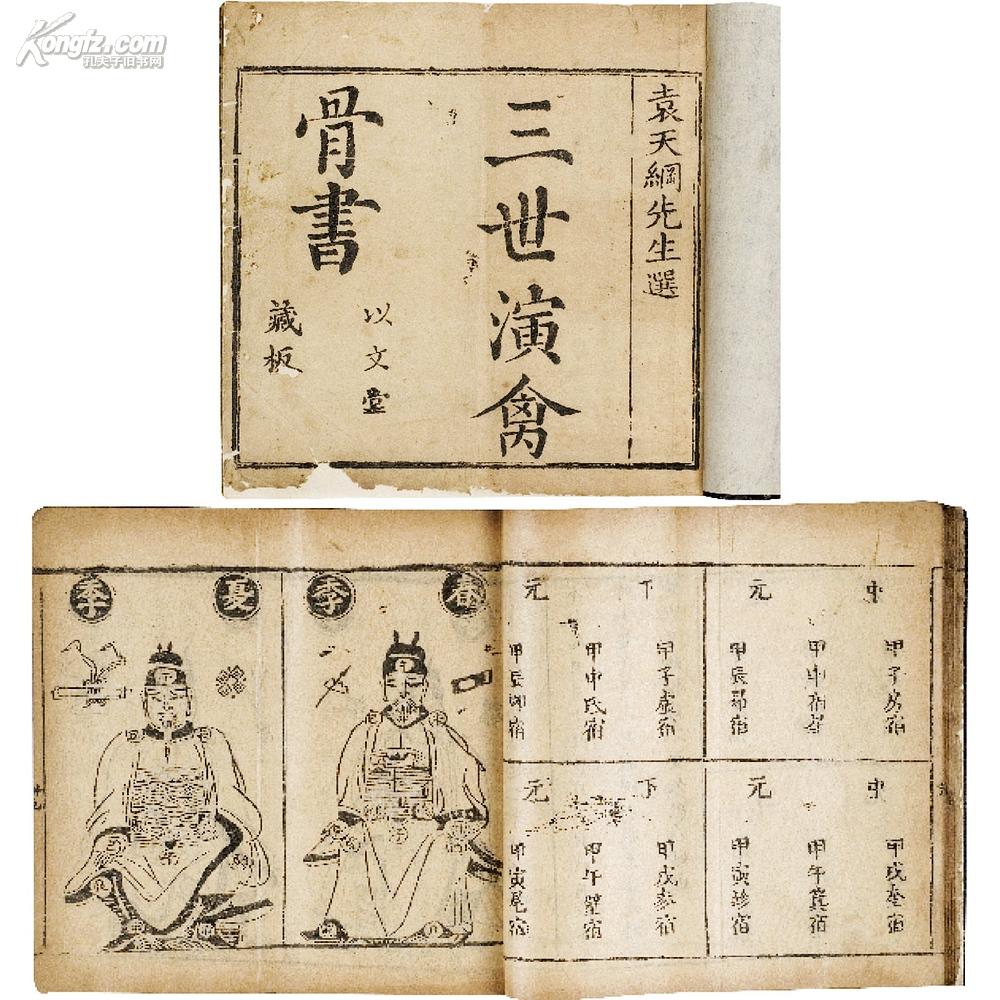 Kongfz.com
孔夫子旧书网
袁天綱先生選
三世演禽
骨書
以文堂
藏板
中元
甲子房宿
甲申宿
甲辰昴宿
下元
甲子虛宿
甲申氐宿
甲辰宿
中元
甲戌奎宿
甲午箕宿
甲寅軫宿
下元
甲戌參宿
甲午壁宿
甲寅尾宿
春季
夏季